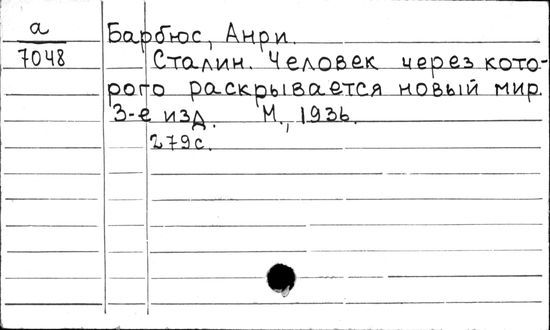 а
7048
Барбюс, Анри.
Сталин. Человек через кото-
рого раскрывается новый мир.
3-е изд. М., 1936.
279с.